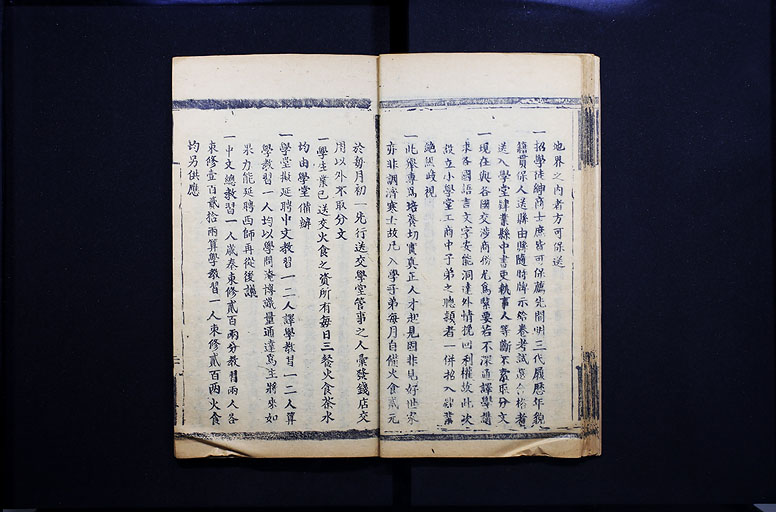 地界之内者方可保送
一招學徒紳商士庶皆可保薦先開明三代履歷年貌
籍貫保人送縣由縣隨時牌示給卷考試萬合格者
送入學堂肄業縣中書吏執事人等斷不素臣分文
一現在與各國交涉商務尤為緊要若不深通譯學講
求各國語言文字安能洞達外情挽回利權故此次
設立小學堂工商中子弟之聰穎者一併招入肄業
絶無歧視
一此舉專為培養切實真正人才起見固非見好世家
亦非調濟寒士故凡入學子弟每月自備火食貳元
於每月初一先行送交學堂管事之人彙發錢店交
用以外不取分文
一學生業已送交火食之資所有每日三餐火食茶水
均由學堂備辦
一學堂擬延聘中文教習一二人譯學教習一二人算
學教習一人均以學問淹博識量通達為主將來如
果力能延聘西師再從後議
一中文總教習一人歲奉束修貳百兩分教習兩人各
束修壹百貳拾兩算學教習一人束修貳百兩火食
均另供應